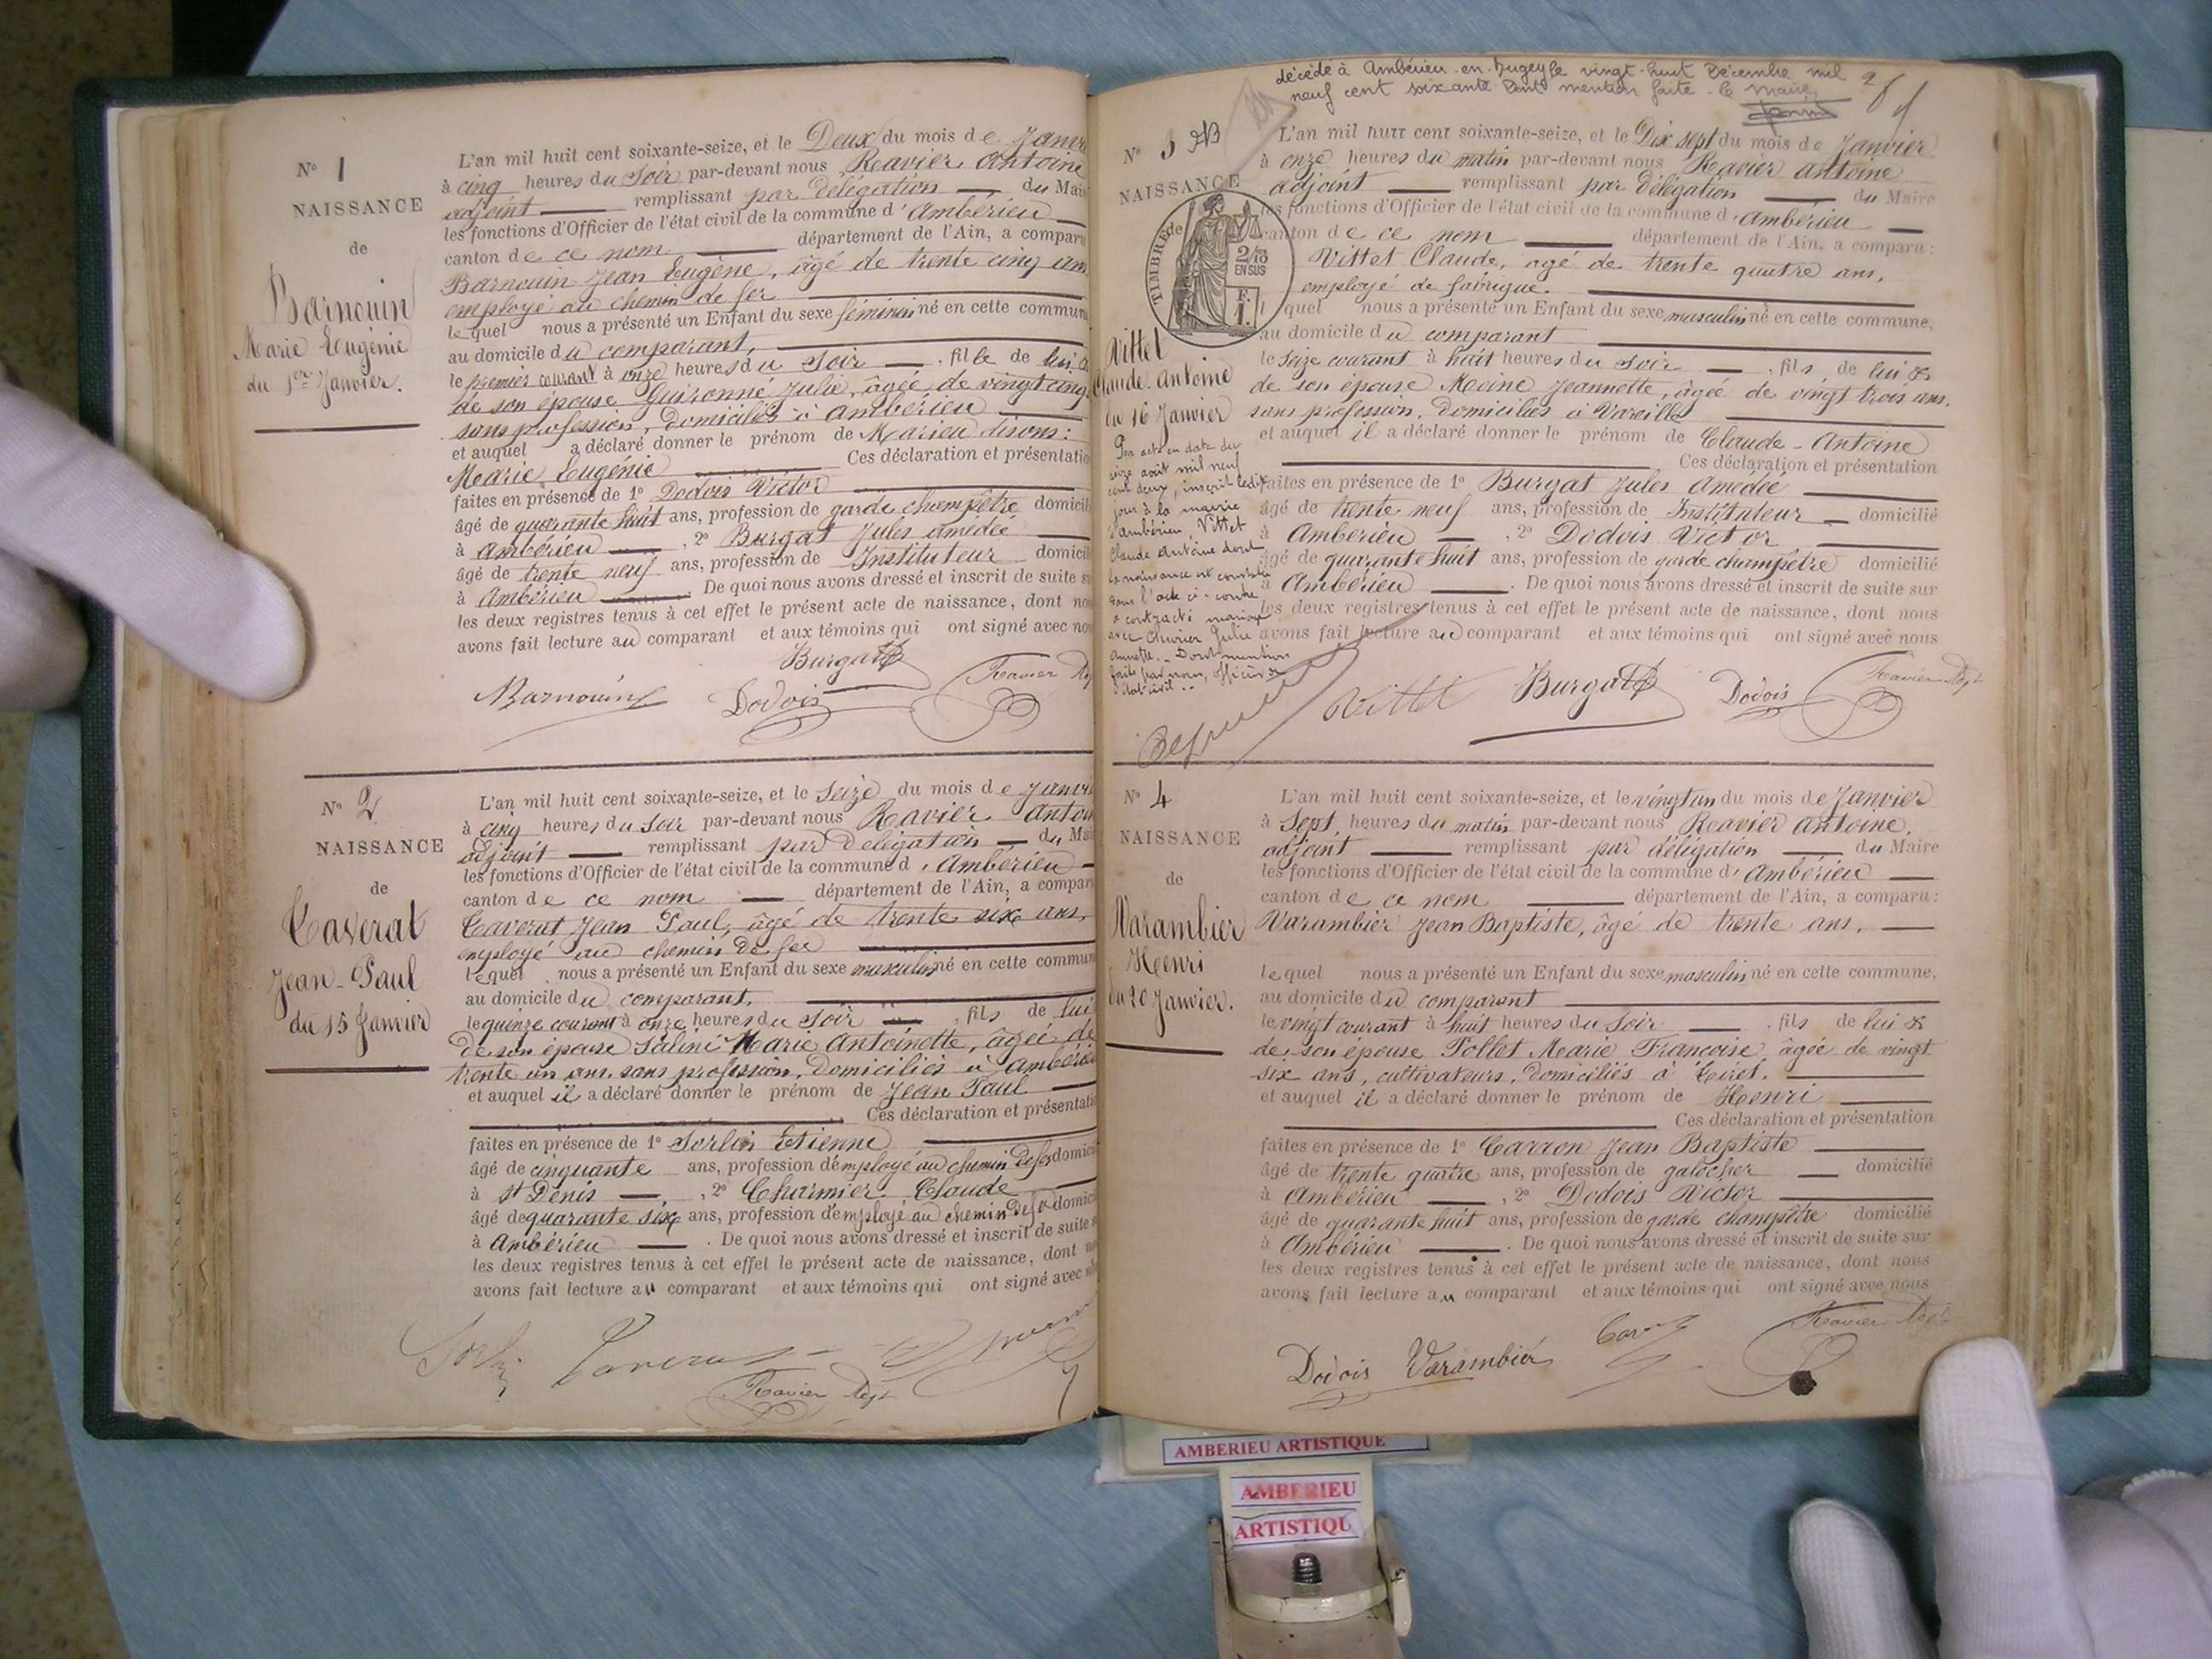 N° 1
NAISSANCE
de
Barnouin
Marie Eugénie
du 1er Janvier.
L'an mil huit cent soixante-seize, et le Deux du mois de Janvi
à cinq heures du Soir par-devant nous Ravier Antoine
adjoint remplissant par délégation du Mai
les fonctions d'Officier de l'état civil de la commune d'Ambérieu
canton de ce nom département de l'Ain, a compar
Barnouin Jean Eugène, âgé de trente cinq ans
employé au chemin de fer
lequel nous a présenté un Enfant du sexe féminin né en cette commune
au domicile du comparant,
le premier courant à onze heures du Soir, fille de lui &
de son épouse Guironné Julie, âgée de vingt cinq
sans profession, domiciliés à Ambérieu
et auquel a déclaré donner le prénom de Marieu disons:
Marie Eugénie Ces déclaration et présentatio
faites en présence de 1° Dodois Victor
âgé de quarante huit ans, profession de garde champêtre domicil
à Ambérieu, 2° Burgat Jules Amédée
âgé de trente neuf ans, profession de Instituteur domicil
à Ambérieu. De quoi nous avons dressé et inscrit de suite s
les deux registres tenus à cet effet le présent acte de naissance, dont no
avons fait lecture au comparant et aux témoins qui ont signé avec no
Burgat
Barnouin Dodois Ravier Adjt
N° 2
NAISSANCE
de
Taverat
Jean-Paul
du 15 Janvier
L'an mil huit cent soixante-seize, et le Seize du mois de Janvi
à cinq heures du Soir par-devant nous Ravier Antoin
adjoint remplissant par délégation du Mai
les fonctions d'Officier de l'état civil de la commune d'Ambérieu
canton de ce nom département de l'Ain, a compar
Taverat Jean Paul, âgé de trente six ans,
employé au chemin de fer
lequel nous a présenté un Enfant du sexe masculin né en cette commun
au domicile du comparant,
le quinze courant à onze heures du Soir, fils de lui
de son épouse Salini Marie Antoinette, âgée de
trente un ans, sans profession, domiciliés à Ambérieu
et auquel il a déclaré donner le prénom de Jean Paul
Ces déclaration et présentatio
faites en présence de 1° Sorlin Etienne
âgé de cinquante ans, profession d'employé au chemin de fer domici
à St Denis, 2° Charmier Claude
âgé de quarante six ans, profession d'employé au chemin de fer domici
à Ambérieu. De quoi nous avons dressé et inscrit de suite s
les deux registres tenus à cet effet le présent acte de naissance, dont n
avons fait lecture au comparant et aux témoins qui ont signé avec no
Sorlin Taverat
Ravier Adjt
décédé à Ambérieu-en-Bugey le vingt-huit Décembre mil
neuf cent soixante Dont mention faite. le Maire,
N° 3
NAISSANCE
de
TIMBRE
2/10
EN SUS
F.
1
Vittet
Claude Antoine
du 16 Janvier
Par acte en date du
seize août mil neuf
cent deux, inscrit ledit
jour à la mairie
d'Ambérieu, Vittet
Claude Antoine dont
la naissance est constatée
dans l'acte ci-contre
a contracté mariage
avec Chevrier Julie
Annette. - Dont mention
faite par nous, officier de
l'état civil.
L'an mil huit cent soixante-seize, et le Dix sept du mois de Janvier
à onze heures du matin par-devant nous Ravier Antoine
adjoint remplissant par délégation du Maire
les fonctions d'Officier de l'état civil de la commune d'Ambérieu
canton de ce nom département de l'Ain, a comparu:
Vittet Claude, âgé de trente quatre ans,
employé de fabrique.
quel nous a présenté un Enfant du sexe masculin né en cette commune,
au domicile du comparant
le Seize courant à huit heures du Soir, fils de lui &
de son épouse Moine Jeannette, âgée de vingt trois ans,
sans profession, domiciliés à Vareilles
et auquel il a déclaré donner le prénom de Claude-Antoine
Ces déclaration et présentation
faites en présence de 1° Burgat Jules Amédée
âgé de trente neuf ans, profession de Instituteur domicilié
à Ambérieu, 2° Dodois Victor
âgé de quarante huit ans, profession de garde champêtre domicilié
à Ambérieu. De quoi nous avons dressé et inscrit de suite sur
les deux registres tenus à cet effet le présent acte de naissance, dont nous
avons fait lecture au comparant et aux témoins qui ont signé avec nous
Vittet Burgat Dodois Ravier Adjt
N° 4
NAISSANCE
de
Varambier
Henri
du 20 Janvier.
L'an mil huit cent soixante-seize, et le vingt un du mois de Janvier
à Sept heures du matin par-devant nous Ravier Antoine,
adjoint remplissant par délégation du Maire
les fonctions d'Officier de l'état civil de la commune d'Ambérieu
canton de ce nom département de l'Ain, a comparu:
Varambier Jean Baptiste, âgé de trente ans,
lequel nous a présenté un Enfant du sexe masculin né en cette commune,
au domicile du comparant
le vingt courant à huit heures du Soir, fils de lui &
de son épouse Pollet Marie Françoise, âgée de vingt
six ans, cultivateurs, domiciliés à Tiret.
et auquel il a déclaré donner le prénom de Henri
Ces déclaration et présentation
faites en présence de 1° Carron Jean Baptiste
âgé de trente quatre ans, profession de galocher domicilié
à Ambérieu, 2° Dodois Victor
âgé de quarante huit ans, profession de garde champêtre domicilié
à Ambérieu. De quoi nous avons dressé et inscrit de suite sur
les deux registres tenus à cet effet le présent acte de naissance, dont nous
avons fait lecture au comparant et aux témoins qui ont signé avec nous
Dodois Varambier Ravier Adjt
AMBERIEU ARTISTIQUE
AMBERIEU
ARTISTIQU